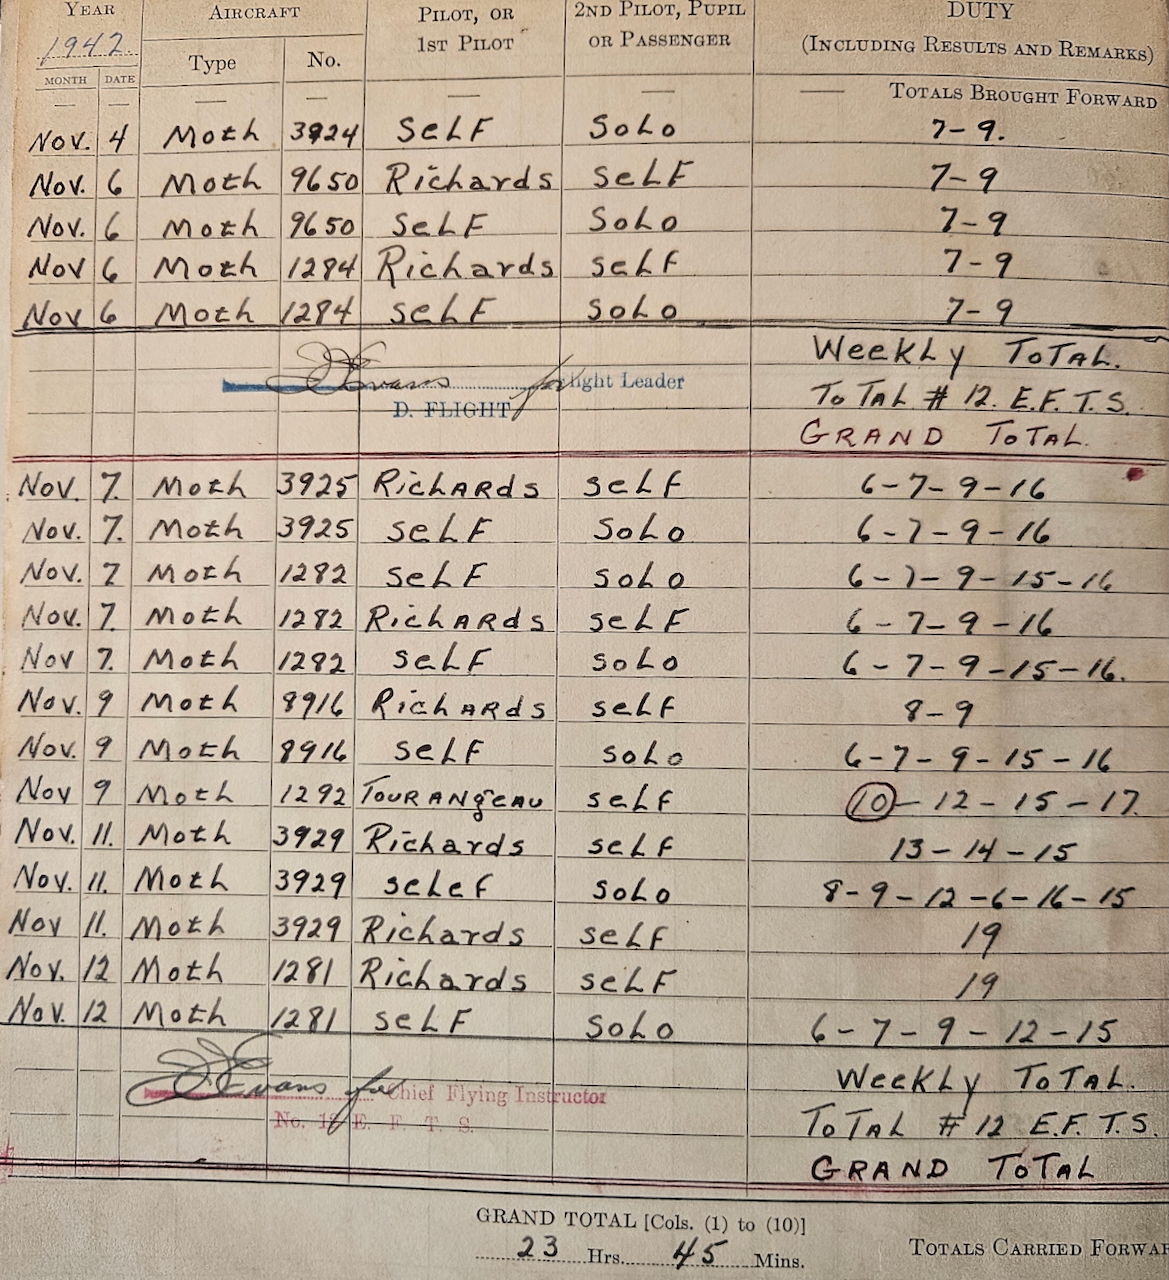 YEAR AIRCRAFT PILOT, OR 2ND PILOT, PUPIL DUTY
1942. 1ST PILOT OR PASSENGER (INCLUDING RESULTS AND REMARKS)
MONTH DATE Type No.
— — — — — — TOTALS BROUGHT FORWARD
Nov. 4 Moth 3924 SeLF SoLo 7-9.
Nov. 6 Moth 9650 Richards SeLF 7-9
Nov. 6 Moth 9650 SeLF SoLo 7-9
Nov 6 Moth 1284 Richards seLF 7-9
Nov 6 Moth 1284 seLF SoLo 7-9
Weekly ToTAL.
Evans for Flight Leader ToTAL # 12. E.F.T.S.
D. FLIGHT GRAND ToTAL.
Nov. 7. Moth 3925 RichARds seLF 6-7-9-16
Nov. 7. Moth 3925 seLF SoLo 6-7-9-16
Nov. 7 Moth 1282 seLF soLo 6-7-9-15-16
Nov. 7. Moth 1282 RichARds seLF 6-7-9-16
Nov 7. Moth 1282 seLF soLo 6-7-9-15-16.
Nov. 9 Moth 8916 RichARds seLF 8-9
Nov. 9 Moth 8916 seLF soLo 6-7-9-15-16
Nov 9 Moth 1292 TOURANgEAU seLF 10-12-15-17.
Nov. 11. Moth 3929 Richards seLF 13-14-15
Nov. 11. Moth 3929 seLef soLo 8-9-12-6-16-15
Nov 11. Moth 3929 Richards seLF 19
Nov. 12 Moth 1281 Richards seLF 19
Nov. 12 Moth 1281 seLF SoLo 6-7-9-12-15
Evans for Chief Flying Instructor Weekly ToTAL.
No. 12 E. F. T. S. ToTAL # 12 E.F.T.S.
GRAND ToTAL
GRAND TOTAL [Cols. (1) to (10)]
23 Hrs. 45 Mins. TOTALS CARRIED FORWAR